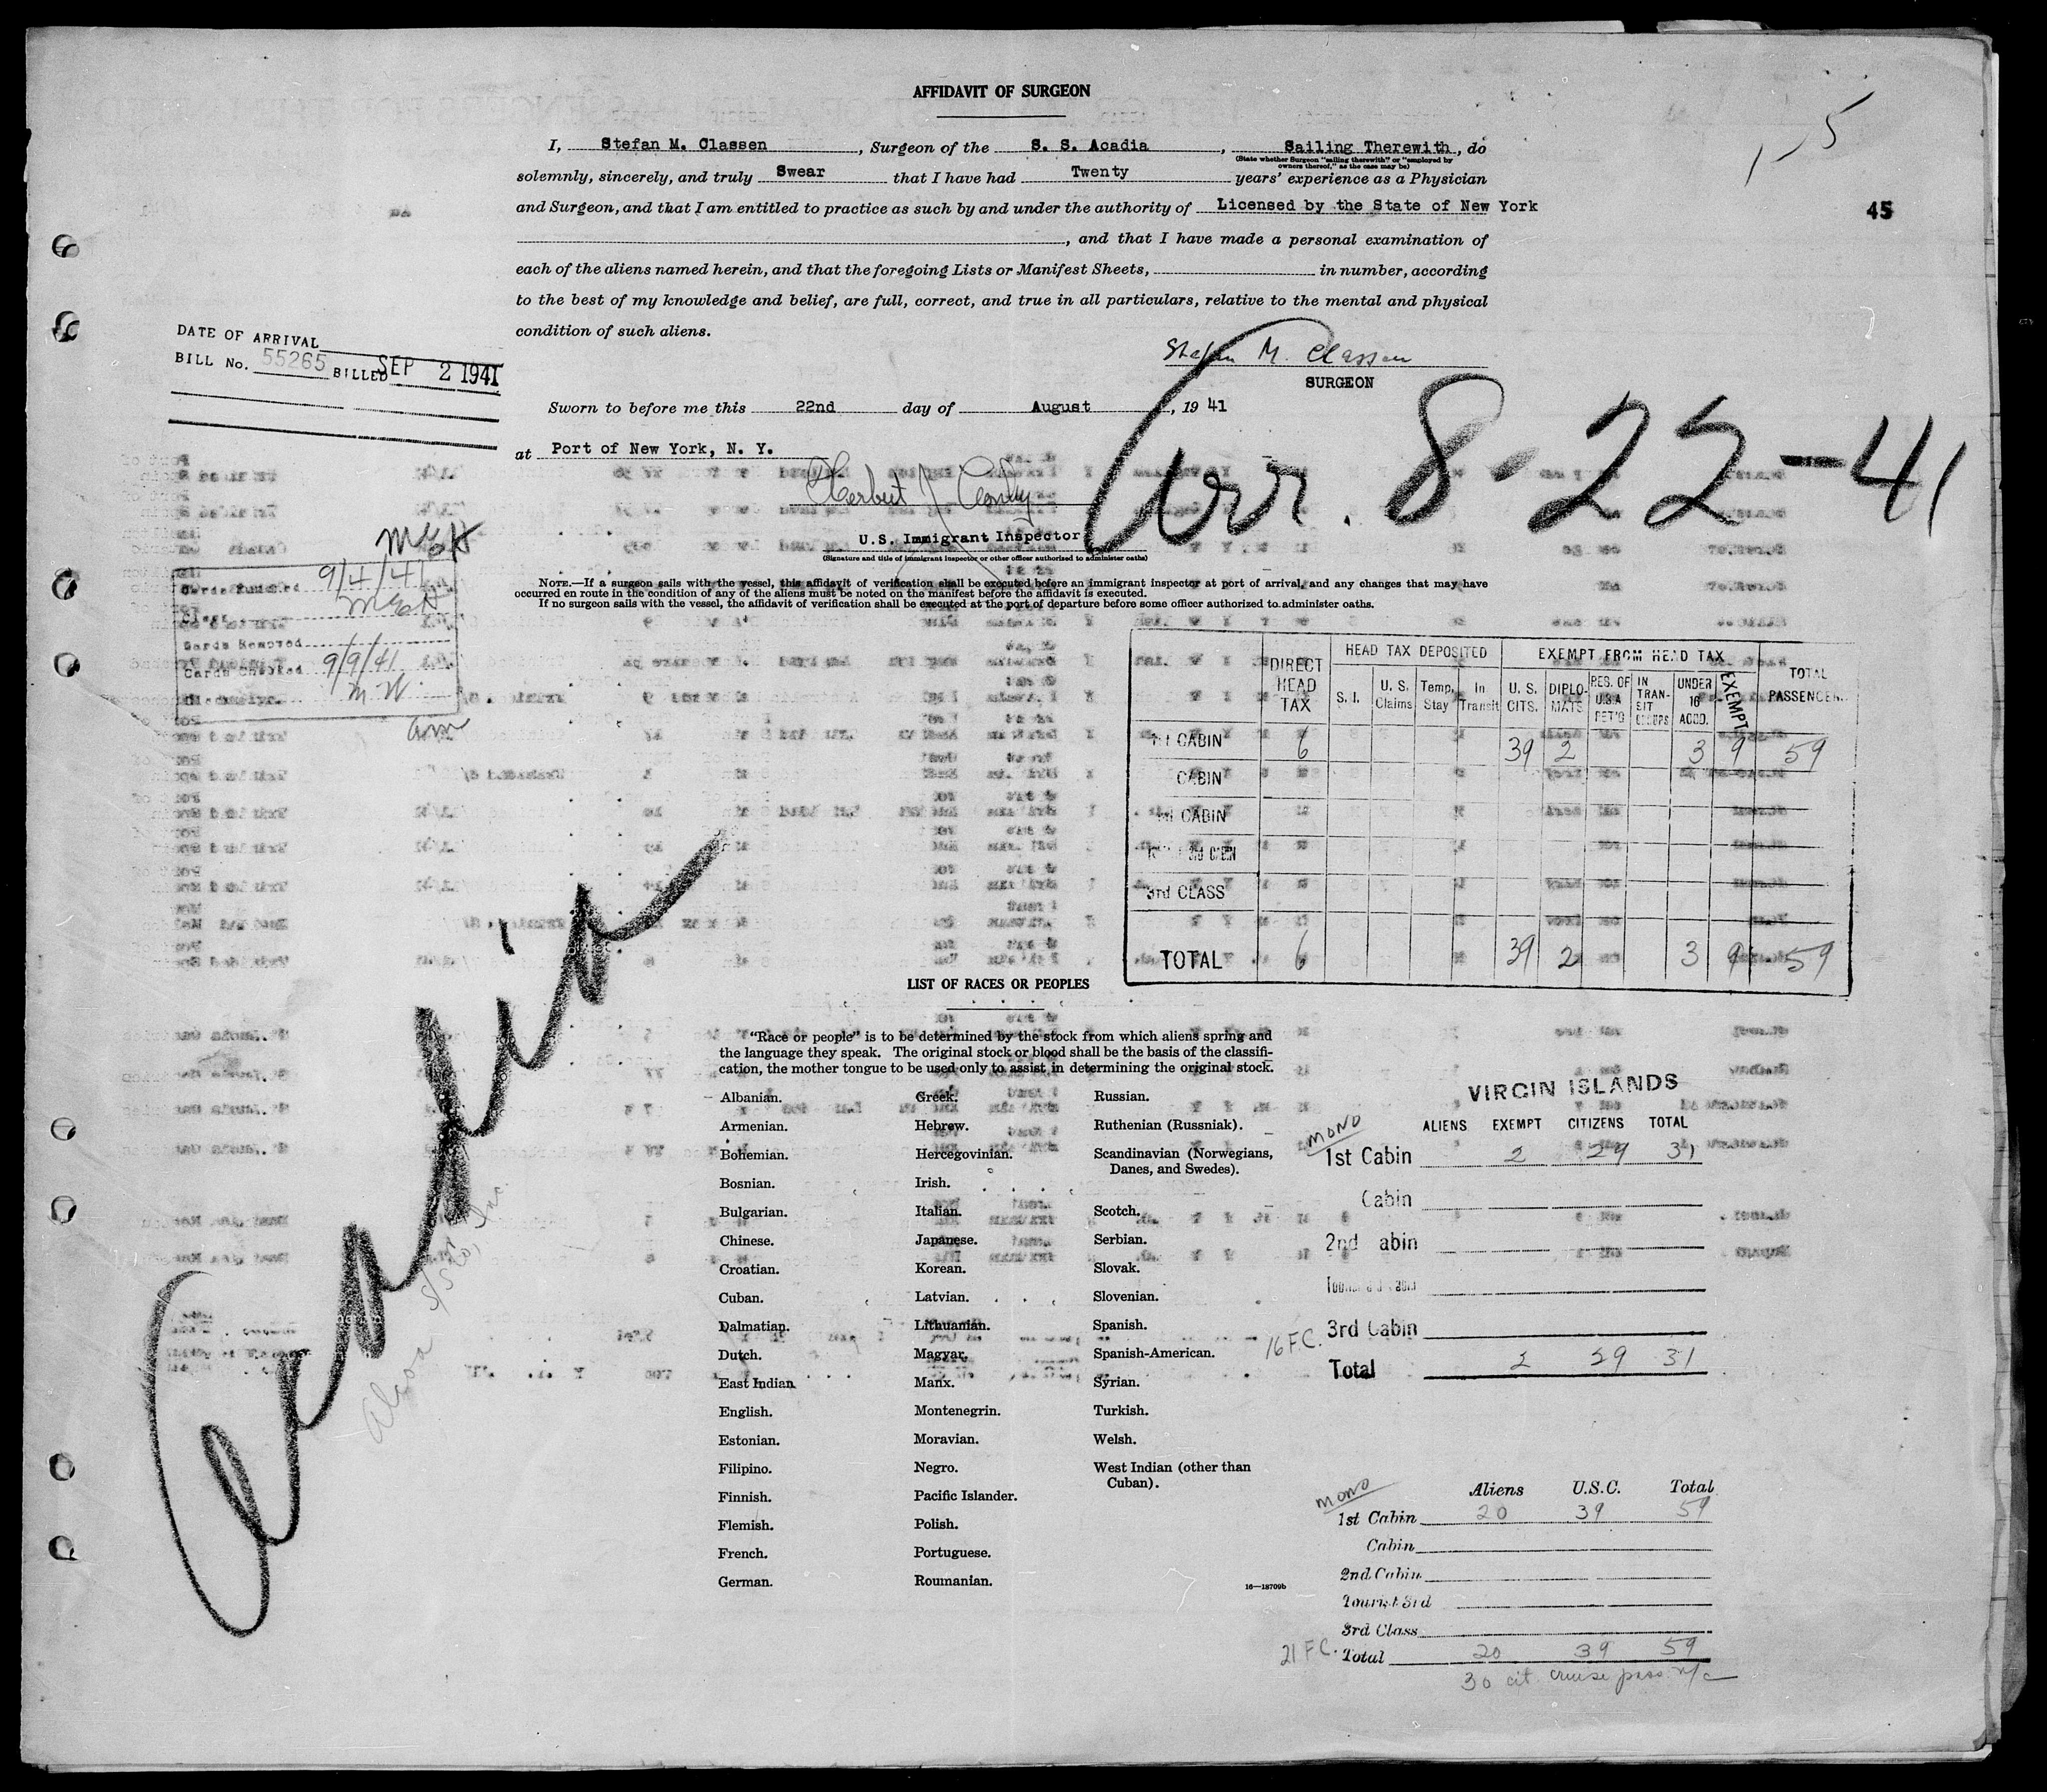 AFFIDAVIT OF SURGEON
1-5
I, Stefan M. Classen, Surgeon of the S. S. Acadia, Sailing Therewith, do
(State whether Surgeon "sailing therewith" or "employed by
owners thereof," as the case may be)
solemnly, sincerely, and truly Swear that I have had Twenty years' experience as a Physician
and Surgeon, and that I am entitled to practice as such by and under the authority of Licensed by the State of New York
45
, and that I have made a personal examination of
each of the aliens named herein, and that the foregoing Lists or Manifest Sheets, in number, according
to the best of my knowledge and belief, are full, correct, and true in all particulars, relative to the mental and physical
condition of such aliens.
DATE OF ARRIVAL
BILL No. 55265 BILLED SEP 2 1941
Stefan M. Classen
SURGEON
Sworn to before me this 22nd day of August, 19 41
Arr. 8-22-41
at Port of New York, N. Y.
Herbert J.
U.S. Immigrant Inspector
(Signature and title of immigrant inspector or other officer authorized to administer oaths)
NOTE.—If a surgeon sails with the vessel, this affidavit of verification shall be executed before an immigrant inspector at port of arrival, and any changes that may have
occurred en route in the condition of any of the aliens must be noted on the manifest before the affidavit is executed.
If no surgeon sails with the vessel, the affidavit of verification shall be executed at the port of departure before some officer authorized to administer oaths.
Cards Punched 9/4/41
Clerk
Cards Removed
Cards Checked 9/9/41
M.W.
DIRECT HEAD TAX HEAD TAX DEPOSITED EXEMPT FROM HEAD TAX TOTAL PASSENGER
S. I. U. S. Claims Temp. Stay In Transit U. S. CITS. DIPLO-MATS RES. OF U.S.A RET'G IN TRAN-SIT GROUPS UNDER 16 ACCD. EXEMPT
CABIN 6 39 2 3 9 59
CABIN
CABIN
3rd CLASS
TOTAL 6 39 2 3 9 59
Acadia
Alcoa S/S Co, Inc.
LIST OF RACES OR PEOPLES
"Race or people" is to be determined by the stock from which aliens spring and
the language they speak. The original stock or blood shall be the basis of the classifi-
cation, the mother tongue to be used only to assist in determining the original stock.
Albanian. Greek. Russian.
Armenian. Hebrew. Ruthenian (Russniak).
Bohemian. Hercegovinian. Scandinavian (Norwegians,
Danes, and Swedes).
Bosnian. Irish.
Bulgarian. Italian. Scotch.
Chinese. Japanese. Serbian.
Croatian. Korean. Slovak.
Cuban. Latvian. Slovenian.
Dalmatian. Lithuanian. Spanish.
Dutch. Magyar. Spanish-American.
East Indian. Manx. Syrian.
English. Montenegrin. Turkish.
Estonian. Moravian. Welsh.
Filipino. Negro. West Indian (other than
Cuban).
Finnish. Pacific Islander.
Flemish. Polish.
French. Portuguese.
German. Roumanian.
16—18709b
VIRGIN ISLANDS
ALIENS EXEMPT CITIZENS TOTAL
MONO
1st Cabin 2 29 31
Cabin
2nd abin
3rd Cabin
16 F.C.
Total 2 29 31
MONO
Aliens U.S.C. Total
1st Cabin 20 39 59
Cabin
2nd Cabin
Tourist 3rd
3rd Class
21 F.C. Total 20 39 59
30 cit. cruise pass. n/c